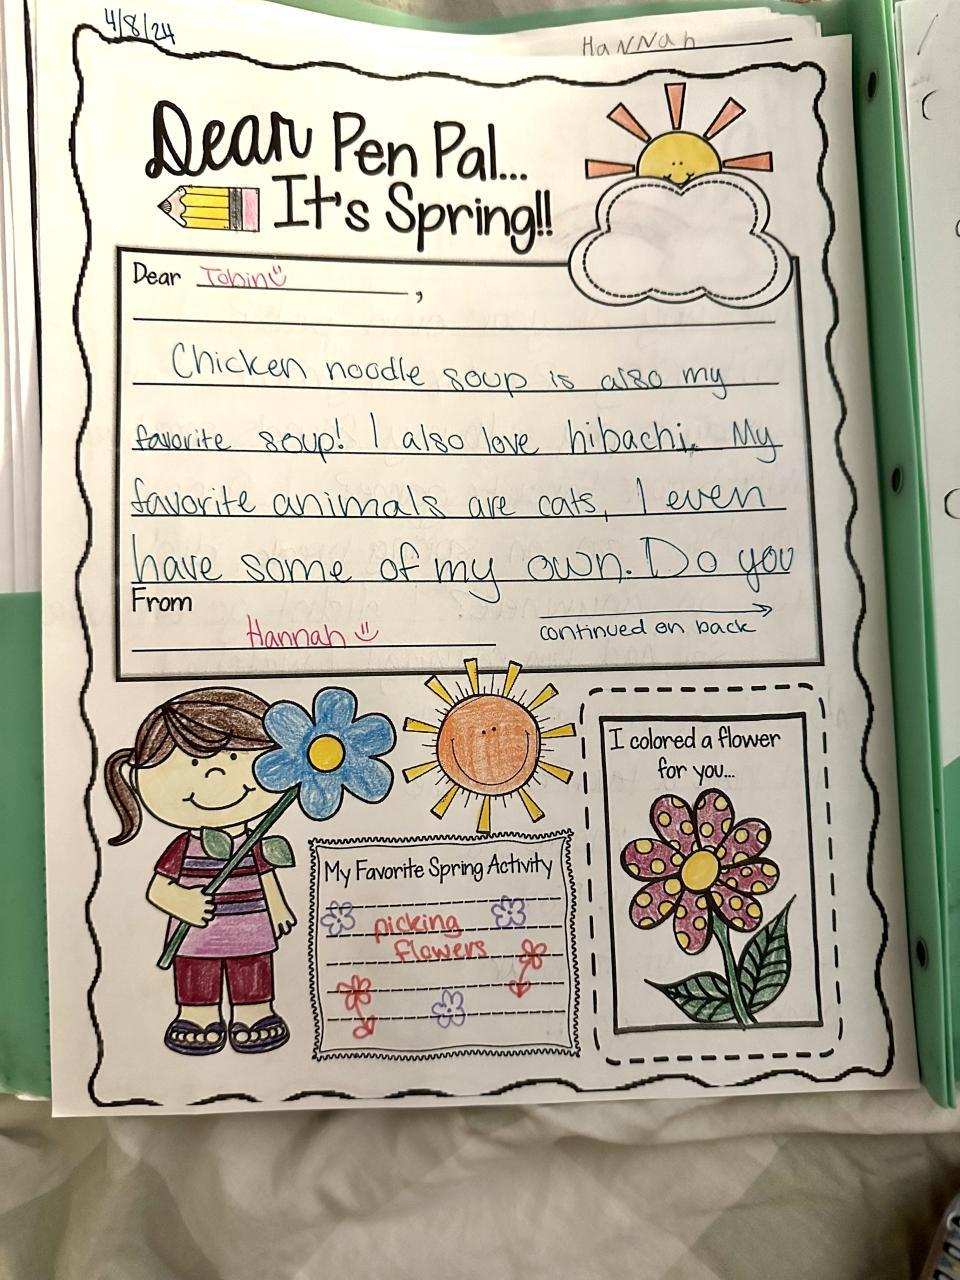 4/8/24
HaNNah
Dear Pen Pal...
It's Spring!!
Dear Tobin
,
Chicken noodle soup is also my
favorite soup! I also love hibachi. My
favorite animals are cats, I even
have some of my own. Do you
From
Hannah
continued on back
I colored a flower
for you...
My Favorite Spring Activity
picking
flowers